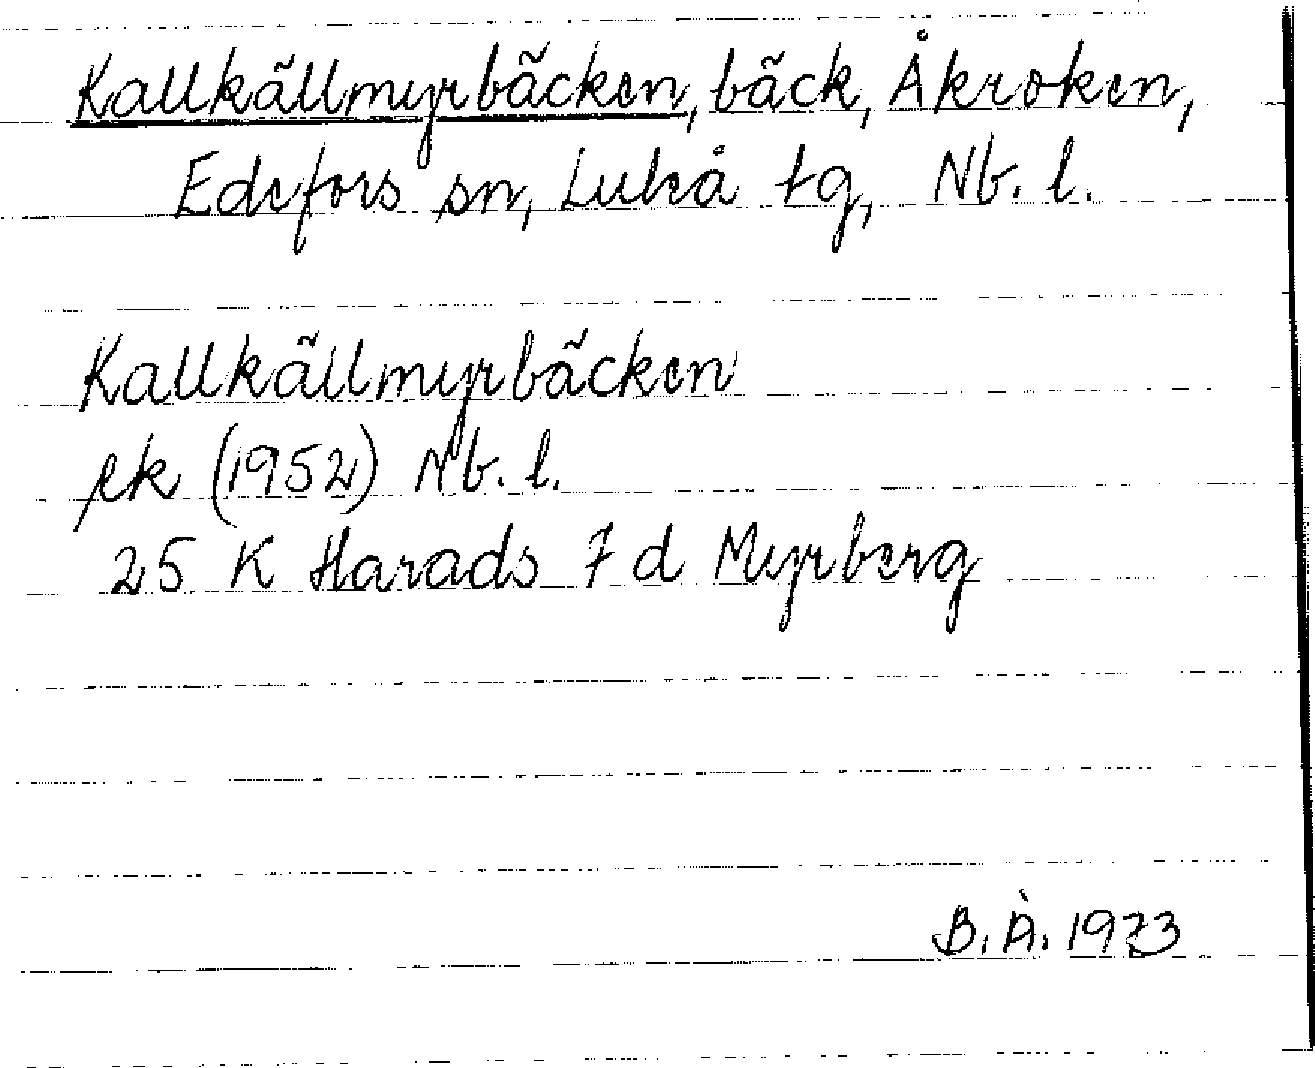 Kallkällmyrbäcken, bäck, Åkroken,
Edefors sn, Luleå tg, Nb. l.
Kallkällmyrbäcken
ek (1952) Nb. l.
25 K Harads 7 d Myrberg
B. Å. 1973